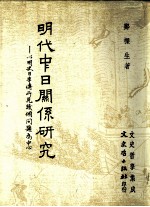 鄭樑生著
明代中日關係研究
——以明史日本傳所見幾個問題為中心
文史哲學集成
文史哲出版社印行